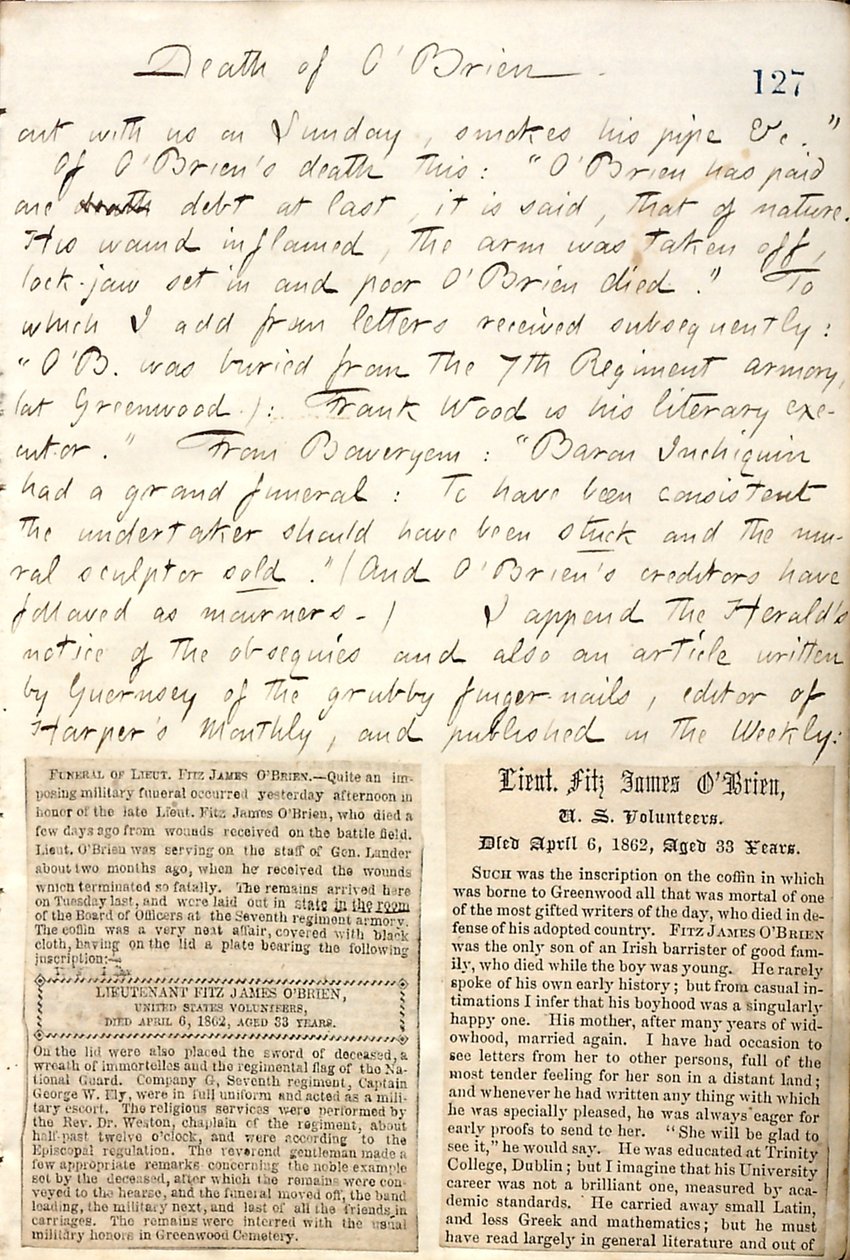 Death of O'Brien.
127
out with us on Sunday, smokes his pipe &c."
Of O'Brien's death this: "O'Brien has paid
one death debt at last, it is said, that of nature.
His wound inflamed, the arm was taken off,
lock-jaw set in and poor O'Brien died." To
which I add from letters received subsequently:
"O'B. was buried from the 7th Regiment armory,
(at Greenwood.): Frank Wood is his literary exe-
cutor." From Boweryem: "Baron Inchiquin
had a grand funeral: To have been consistent
the undertaker should have been stuck and the mu-
ral sculptor sold." (And O'Brien's creditors have
followed as mourners.) I append the Herald's
notice of the obsequies and also an article written
by Guernsey of the grubby finger-nails, editor of
Harper's Monthly, and published in the Weekly:
FUNERAL OF LIEUT. FITZ JAMES O'BRIEN.—Quite an im-
posing military funeral occurred yesterday afternoon in
honor of the late Lieut. Fitz James O'Brien, who died a
few days ago from wounds received on the battle field.
Lieut. O'Brien was serving on the staff of Gen. Lander
about two months ago, when he received the wounds
which terminated so fatally. The remains arrived here
on Tuesday last, and were laid out in state in the room
of the Board of Officers at the Seventh regiment armory.
The coffin was a very neat affair, covered with black
cloth, having on the lid a plate bearing the following
inscription:—
LIEUTENANT FITZ JAMES O'BRIEN,
UNITED STATES VOLUNTEERS,
DIED APRIL 6, 1862, AGED 33 YEARS.
On the lid were also placed the sword of deceased, a
wreath of immortelles and the regimental flag of the Na-
tional Guard. Company G, Seventh regiment, Captain
George W. Ely, were in full uniform and acted as a mili-
tary escort. The religious services were performed by
the Rev. Dr. Weston, chaplain of the regiment, about
half-past twelve o'clock, and were according to the
Episcopal regulation. The reverend gentleman made a
few appropriate remarks concerning the noble example
set by the deceased, after which the remains were con-
veyed to the hearse, and the funeral moved off, the band
leading, the military next, and last of all the friends in
carriages. The remains were interred with the usual
military honors in Greenwood Cemetery.
Lieut. Fitz James O'Brien,
U. S. Volunteers.
Died April 6, 1862, Aged 33 Years.
SUCH was the inscription on the coffin in which
was borne to Greenwood all that was mortal of one
of the most gifted writers of the day, who died in de-
fense of his adopted country. FITZ JAMES O'BRIEN
was the only son of an Irish barrister of good fam-
ily, who died while the boy was young. He rarely
spoke of his own early history; but from casual in-
timations I infer that his boyhood was a singularly
happy one. His mother, after many years of wid-
owhood, married again. I have had occasion to
see letters from her to other persons, full of the
most tender feeling for her son in a distant land;
and whenever he had written any thing with which
he was specially pleased, he was always eager for
early proofs to send to her. "She will be glad to
see it," he would say. He was educated at Trinity
College, Dublin; but I imagine that his University
career was not a brilliant one, measured by aca-
demic standards. He carried away small Latin,
and less Greek and mathematics; but he must
have read largely in general literature and out of